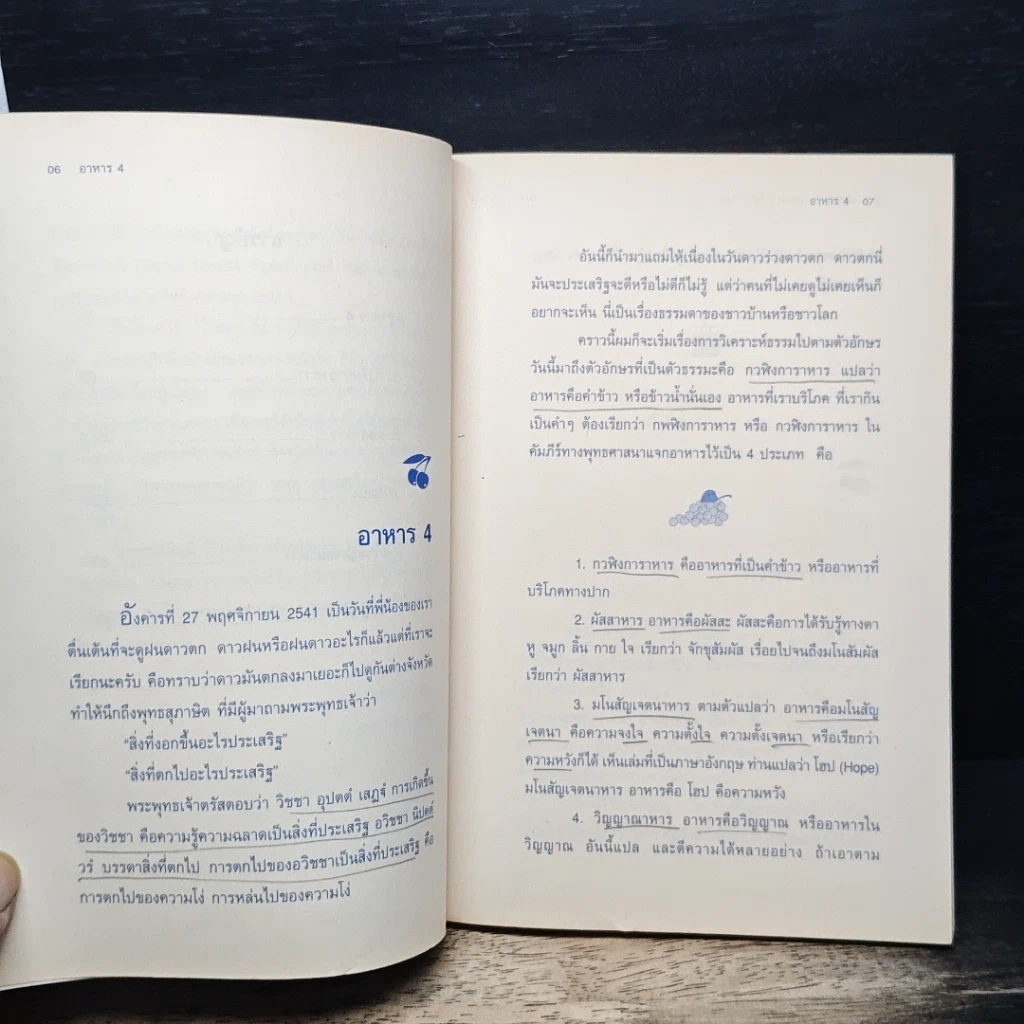 06 อาหาร 4
อาหาร 4
อังคารที่ 27 พฤศจิกายน 2541 เป็นวันที่พี่น้องของเรา
ตื่นเต้นที่จะดูฝนดาวตก ดาวฝนหรือฝนดาวอะไรก็แล้วแต่ที่เราจะ
เรียกนะครับ คือทราบว่าดาวมันตกลงมาเยอะก็ไปดูกันต่างจังหวัด
ทำให้นึกถึงพุทธสุภาษิต ที่มีผู้มาถามพระพุทธเจ้าว่า
“สิ่งที่งอกขึ้นอะไรประเสริฐ”
“สิ่งที่ตกไปอะไรประเสริฐ”
พระพุทธเจ้าตรัสตอบว่า วิชชา อุปตตํ เสฏฐํ การเกิดขึ้น
ของวิชชา คือความรู้ความฉลาดเป็นสิ่งที่ประเสริฐ อวิชชา นิปตตํ
วรํ บรรดาสิ่งที่ตกไป การตกไปของอวิชชาเป็นสิ่งที่ประเสริฐ คือ
การตกไปของความโง่ การหล่นไปของความโง่
อาหาร 4 07
อันนี้ก็นำมาแถมให้เนื่องในวันดาวร่วงดาวตก ดาวตกนี่
มันจะประเสริฐจะดีหรือไม่ดีก็ไม่รู้ แต่ว่าคนที่ไม่เคยดูไม่เคยเห็นก็
อยากจะเห็น นี่เป็นเรื่องธรรมดาของชาวบ้านหรือชาวโลก
คราวนี้ผมก็จะเริ่มเรื่องการวิเคราะห์ธรรมไปตามตัวอักษร
วันนี้มาถึงตัวอักษรที่เป็นตัวธรรมะคือ กวฬิงการาหาร แปลว่า
อาหารคือคำข้าว หรือข้าวน้ำนั่นเอง อาหารที่เราบริโภค ที่เรากิน
เป็นคำๆ ต้องเรียกว่า กพฬิงการาหาร หรือ กวฬิงการาหาร ใน
คัมภีร์ทางพุทธศาสนาแจกอาหารไว้เป็น 4 ประเภท คือ
1. กวฬิงการาหาร คืออาหารที่เป็นคำข้าว หรืออาหารที่
บริโภคทางปาก
2. ผัสสาหาร อาหารคือผัสสะ ผัสสะคือการได้รับรู้ทางตา
หู จมูก ลิ้น กาย ใจ เรียกว่า จักขุสัมผัส เรื่อยไปจนถึงมโนสัมผัส
เรียกว่า ผัสสาหาร
3. มโนสัญเจตนาหาร ตามตัวแปลว่า อาหารคือมโนสัญ
เจตนา คือความจงใจ ความตั้งใจ ความตั้งเจตนา หรือเรียกว่า
ความหวังก็ได้ เห็นเล่มที่เป็นภาษาอังกฤษ ท่านแปลว่า โฮป (Hope)
มโนสัญเจตนาหาร อาหารคือ โฮป คือความหวัง
4. วิญญาณาหาร อาหารคือวิญญาณ หรืออาหารใน
วิญญาณ อันนี้แปล และตีความได้หลายอย่าง ถ้าเอาตาม